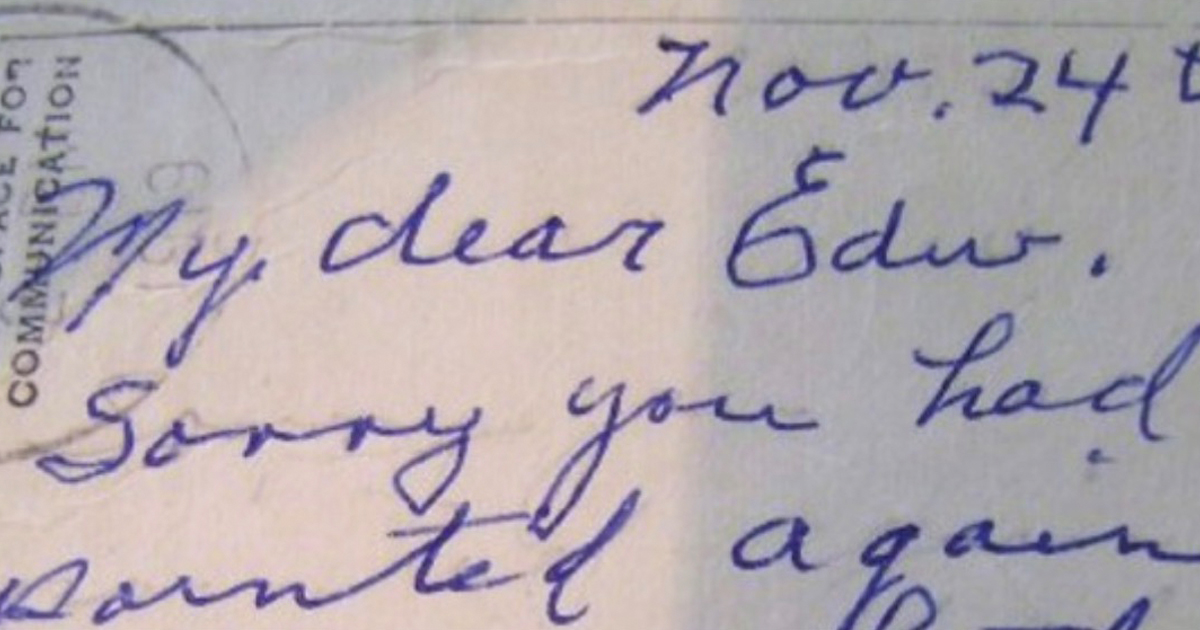 SPACE FOR
COMMUNICATION
Nov. 24
My dear Edw.
Sorry you had
again